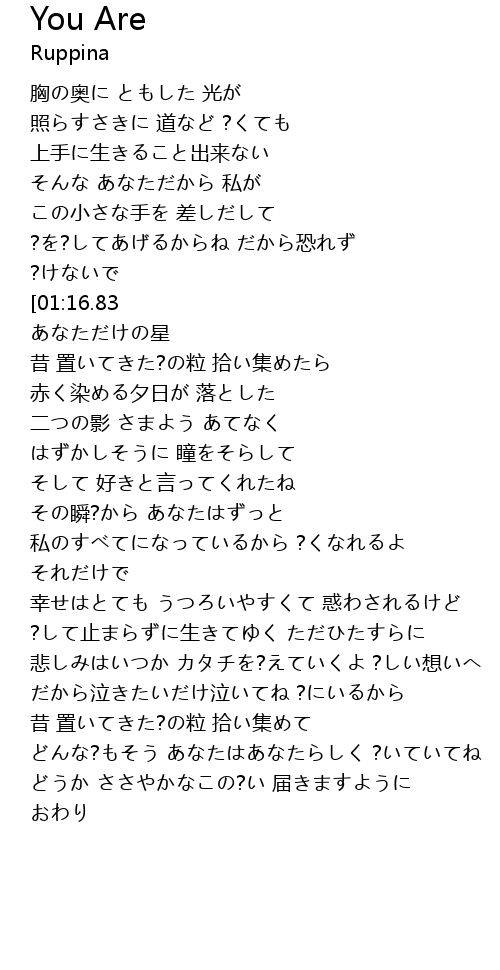 You Are
Ruppina
胸の奥に ともした 光が
照らすさきに 道など ?くても
上手に生きること出来ない
そんな あなただから 私が
この小さな手を 差しだして
?を?してあげるからね だから恐れず
?けないで
[01:16.83
あなただけの星
昔 置いてきた?の粒 拾い集めたら
赤く染める夕日が 落とした
二つの影 さまよう あてなく
はずかしそうに 瞳をそらして
そして 好きと言ってくれたね
その瞬?から あなたはずっと
私のすべてになっているから ?くなれるよ
それだけで
幸せはとても うつろいやすくて 惑わされるけど
?して止まらずに生きてゆく ただひたすらに
悲しみはいつか カタチを?えていくよ ?しい想いへ
だから泣きたいだけ泣いてね ?にいるから
昔 置いてきた?の粒 拾い集めて
どんな?もそう あなたはあなたらしく ?いていてね
どうか ささやかなこの?い 届きますように
おわり